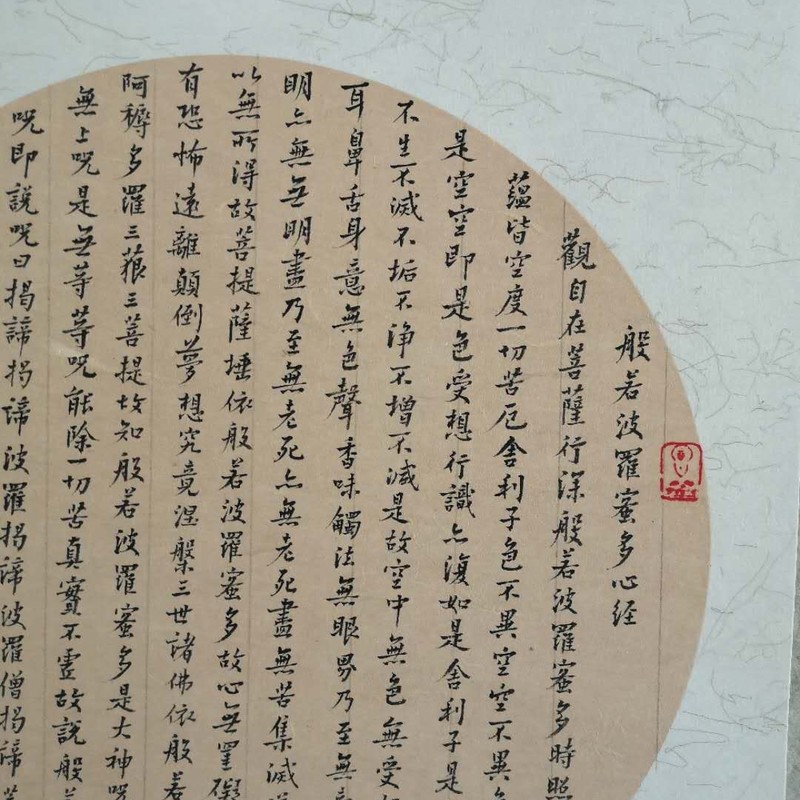 般若波羅蜜多心经
觀自在菩薩行深般若波羅蜜多時照
蕴皆空度一切苦厄舍利子色不異空空不異
是空空即是色受想行識亦復如是舍利子是
不生不滅不垢不浄不增不滅是故空中無色無受
耳鼻舌身意無色聲香味觸法無眼界乃至無
明亦無無明盡乃至無老死亦無老死盡無苦集滅
以無所得故菩提薩埵依般若波羅蜜多故心無罣礙
有恐怖遠離顛倒夢想究竟涅槃三世諸佛依般若
阿耨多羅三藐三菩提故知般若波羅蜜多是大神咒
無上咒是無等等咒能除一切苦真實不虛故説般
咒即説咒曰揭諦揭諦波羅揭諦波羅僧揭諦